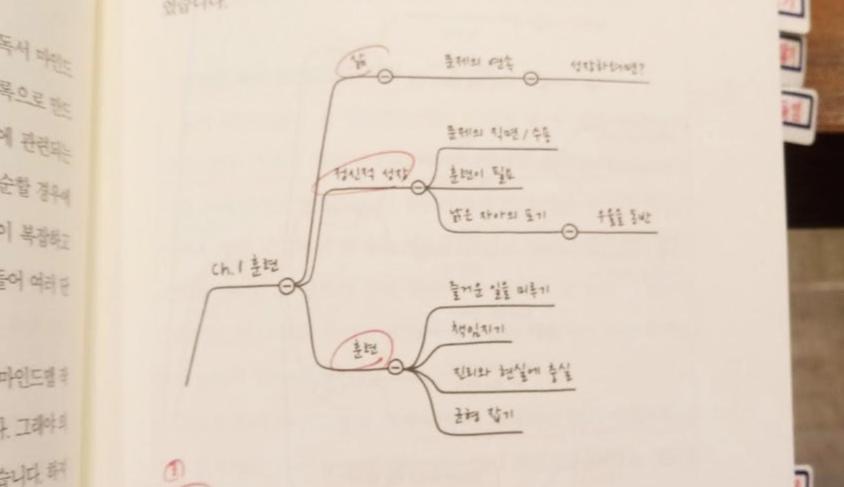 었습니다.
독서 마인드
록으로 만드
에 관련되는
순할 경우에
이 복잡하고
들어 여러 단
마인드맵 작
다. 그래야 의
습니다. 하지
삶
문제의 연속
성장하려면?
정신적 성장
문제의 직면 / 수용
훈련이 필요
낡은 자아의 포기
우울을 동반
Ch.1 훈련
훈련
즐거운 일을 미루기
책임지기
진리와 현실에 충실
균형 잡기